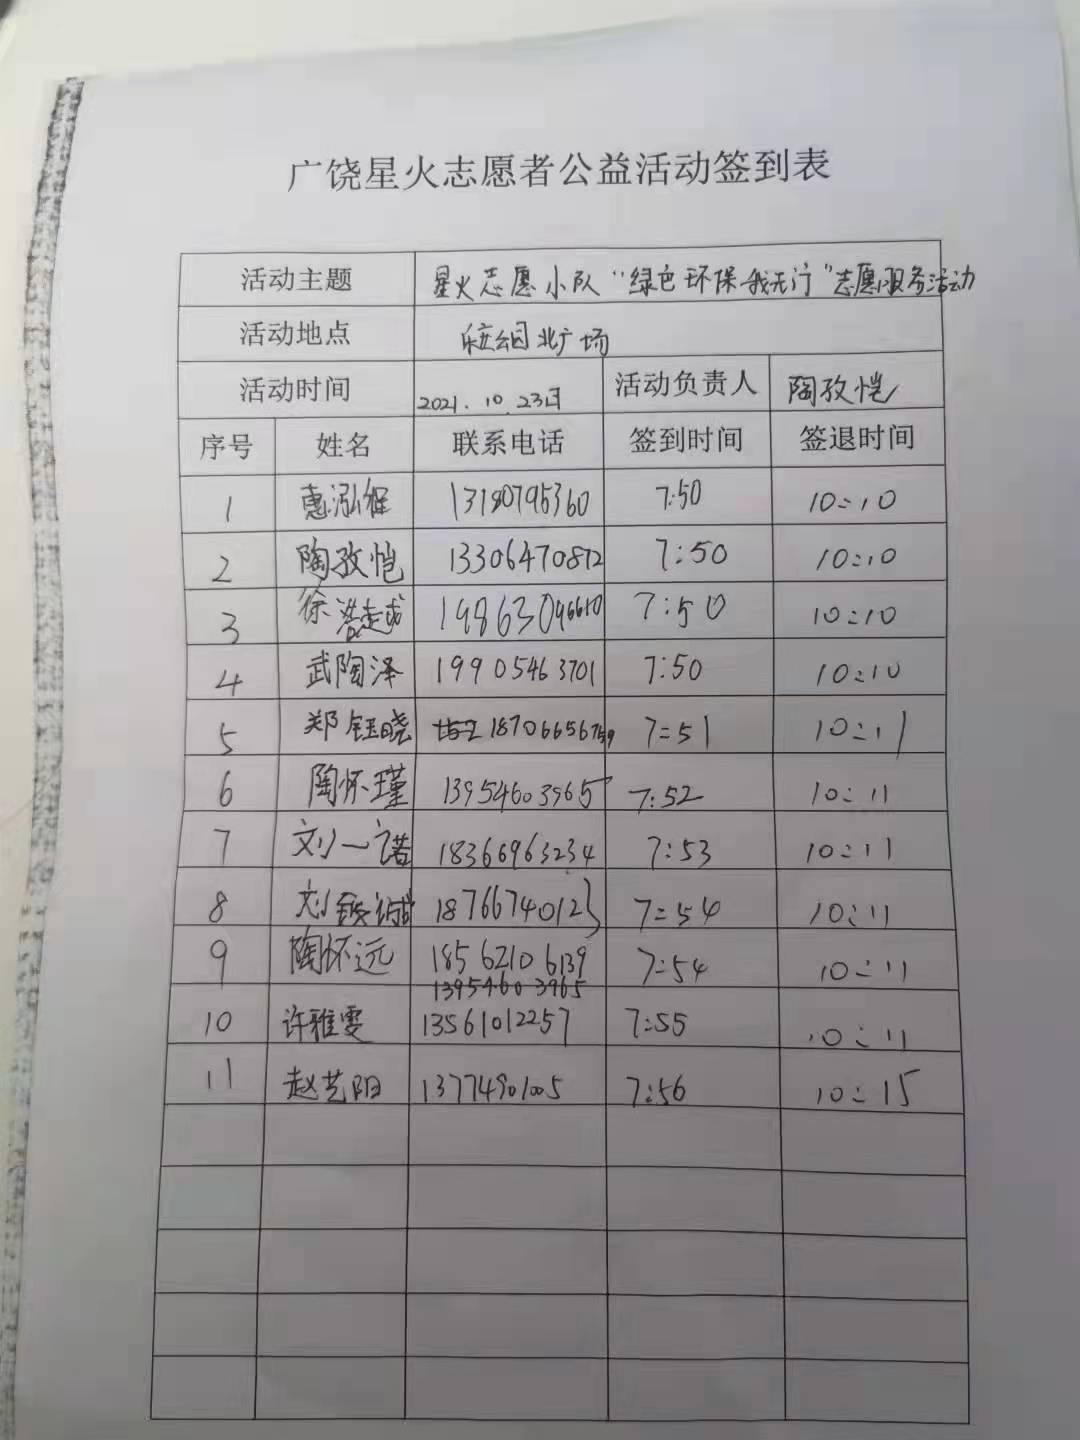 广饶星火志愿者公益活动签到表
活动主题 星火志愿小队“绿色环保我先行”志愿服务活动
活动地点 乐安公园北广场
活动时间 2021.10.23日 活动负责人 陶孜恺
序号 姓名 联系电话 签到时间 签退时间
1 惠泓程 13180795360 7:50 10:10
2 陶孜恺 13306470872 7:50 10:10
3 徐浩越 19863096610 7:50 10:10
4 武陶泽 19905463701 7:50 10:10
5 郑钰晓 18706656759 7:51 10:11
6 陶怀瑾 13954603965 7:52 10:11
7 刘一诺 18366963234 7:53 10:11
8 刘 诚 18766740123 7:54 10:11
9 陶怀远 18562106139 7:54 10:11
13954603965
10 许雅雯 13561012257 7:55 10:11
11 赵艺阳 13774901005 7:56 10:15